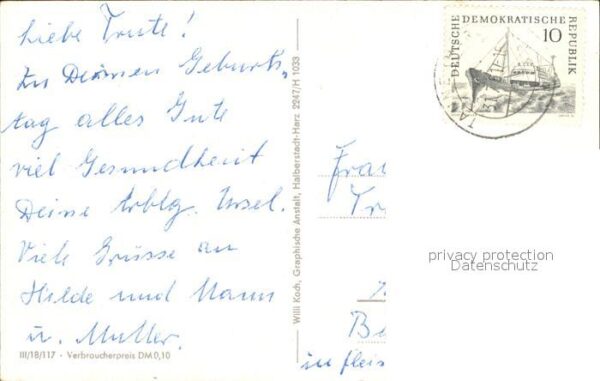 Liebe Trute!
Zu Deinen Geburts-
tag alles Gute
viel Gesundheit
Deine
Viele Grüsse an
Hilde und Mann
u. Mutter.
III/18/117 - Verbraucherpreis DM 0,10
Willi Koch, Graphische Anstalt, Halberstadt-Harz 2247/H 1033
DEUTSCHE DEMOKRATISCHE REPUBLIK
10
Frau
Tr
privacy protection
Datenschutz
Be
in fleis